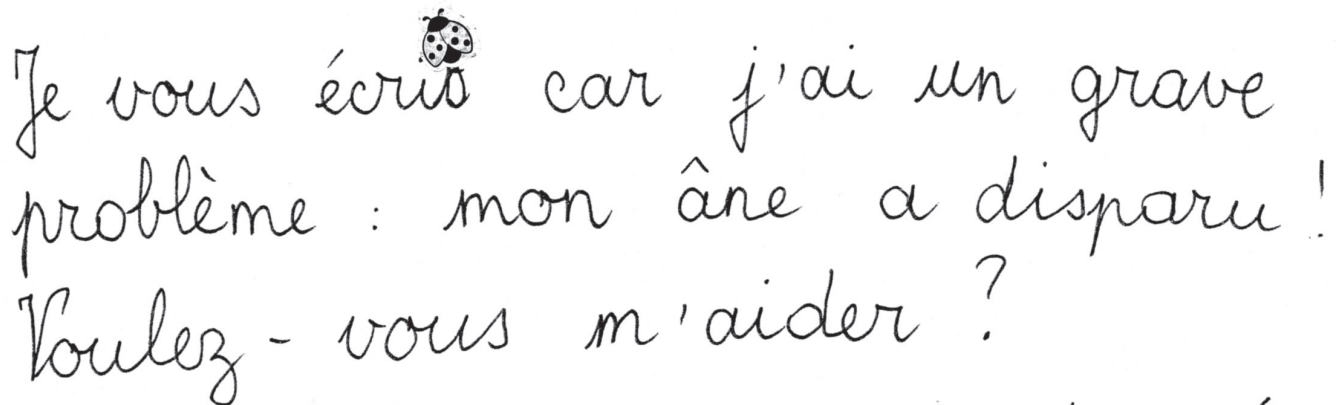 Je vous écris car j'ai un grave
problème : mon âne a disparu !
Voulez-vous m'aider ?